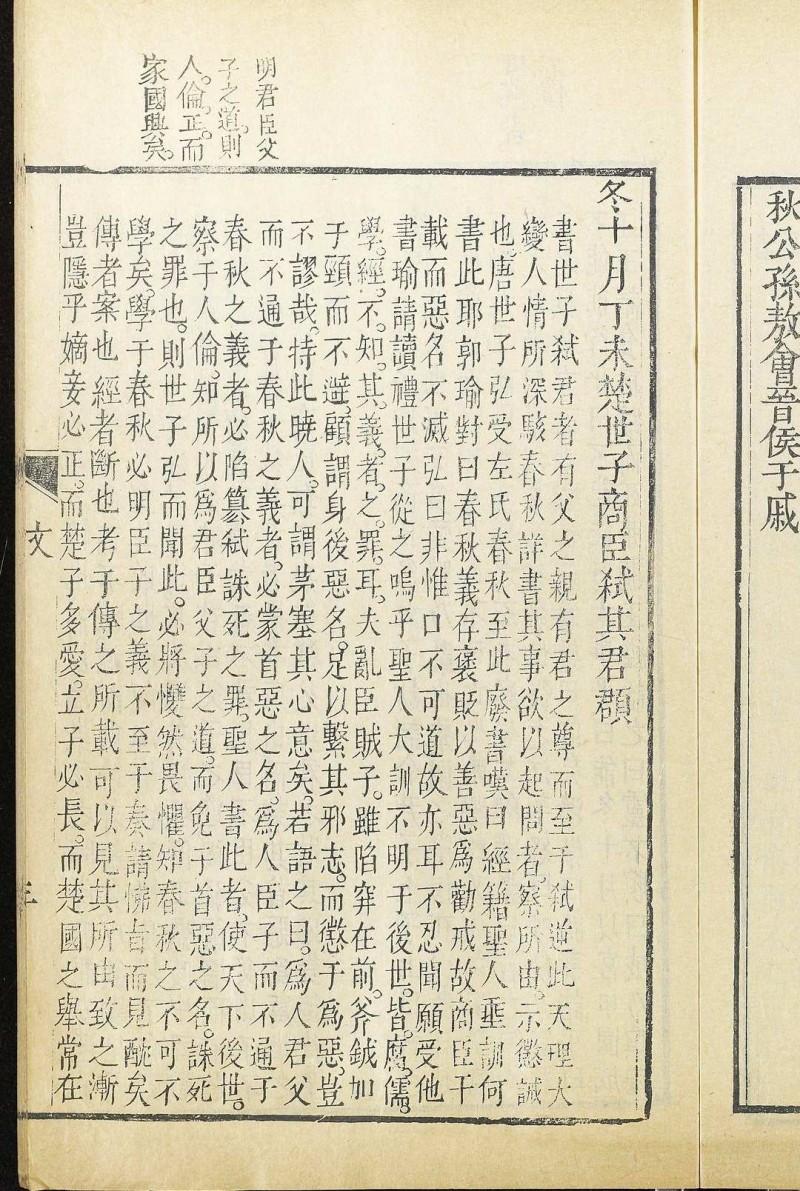 秋公孫敖會晉侯于戚
明君臣父
子之道。則
人倫。正。而
家國興矣。
冬十月丁未楚世子商臣弑其君頵
書世子弑君者有父之親有君之尊而至于弑逆此天理大
變人情所深駭春秋詳書其事欲以起問者。察所由。示懲誡
也。唐世子弘受左氏春秋至此廢書嘆曰經籍聖人垂訓何
書此耶郭瑜對曰春秋義存褒貶以善惡爲勸戒故商臣千
載而惡名不滅弘曰非惟口不可道故亦耳不忍聞願受他
書瑜請讀禮世子從之嗚乎聖人大訓不明于後世。皆。腐。儒。
學。經。不。知。其。義。者。之。罪。耳。夫亂臣賊子。雖陷穽在前。斧鉞加
于頸而不避。顧謂身後惡名。足以繫其邪志。而懲于爲惡。豈
不謬哉。持此曉人。可謂茅塞其心意矣。若語之曰。爲人君父
而不通于春秋之義者。必蒙首惡之名。爲人臣子而不通于
春秋之義者。必陷簒弑誅死之罪。聖人書此者。使天下後世。
察于人倫。知所以爲君臣父子之道。而免于首惡之名。誅死
之罪也。則世子弘而聞此。必將戄然畏懼。知春秋之不可不
學矣。學于春秋必明臣子之義不至于奏請怫旨而見酖矣
傳者案也經者斷也考于傳之所載可以見其所由致之漸
豈隱乎嫡妾必正。而楚子多愛。立子必長。而楚國之舉常在
文